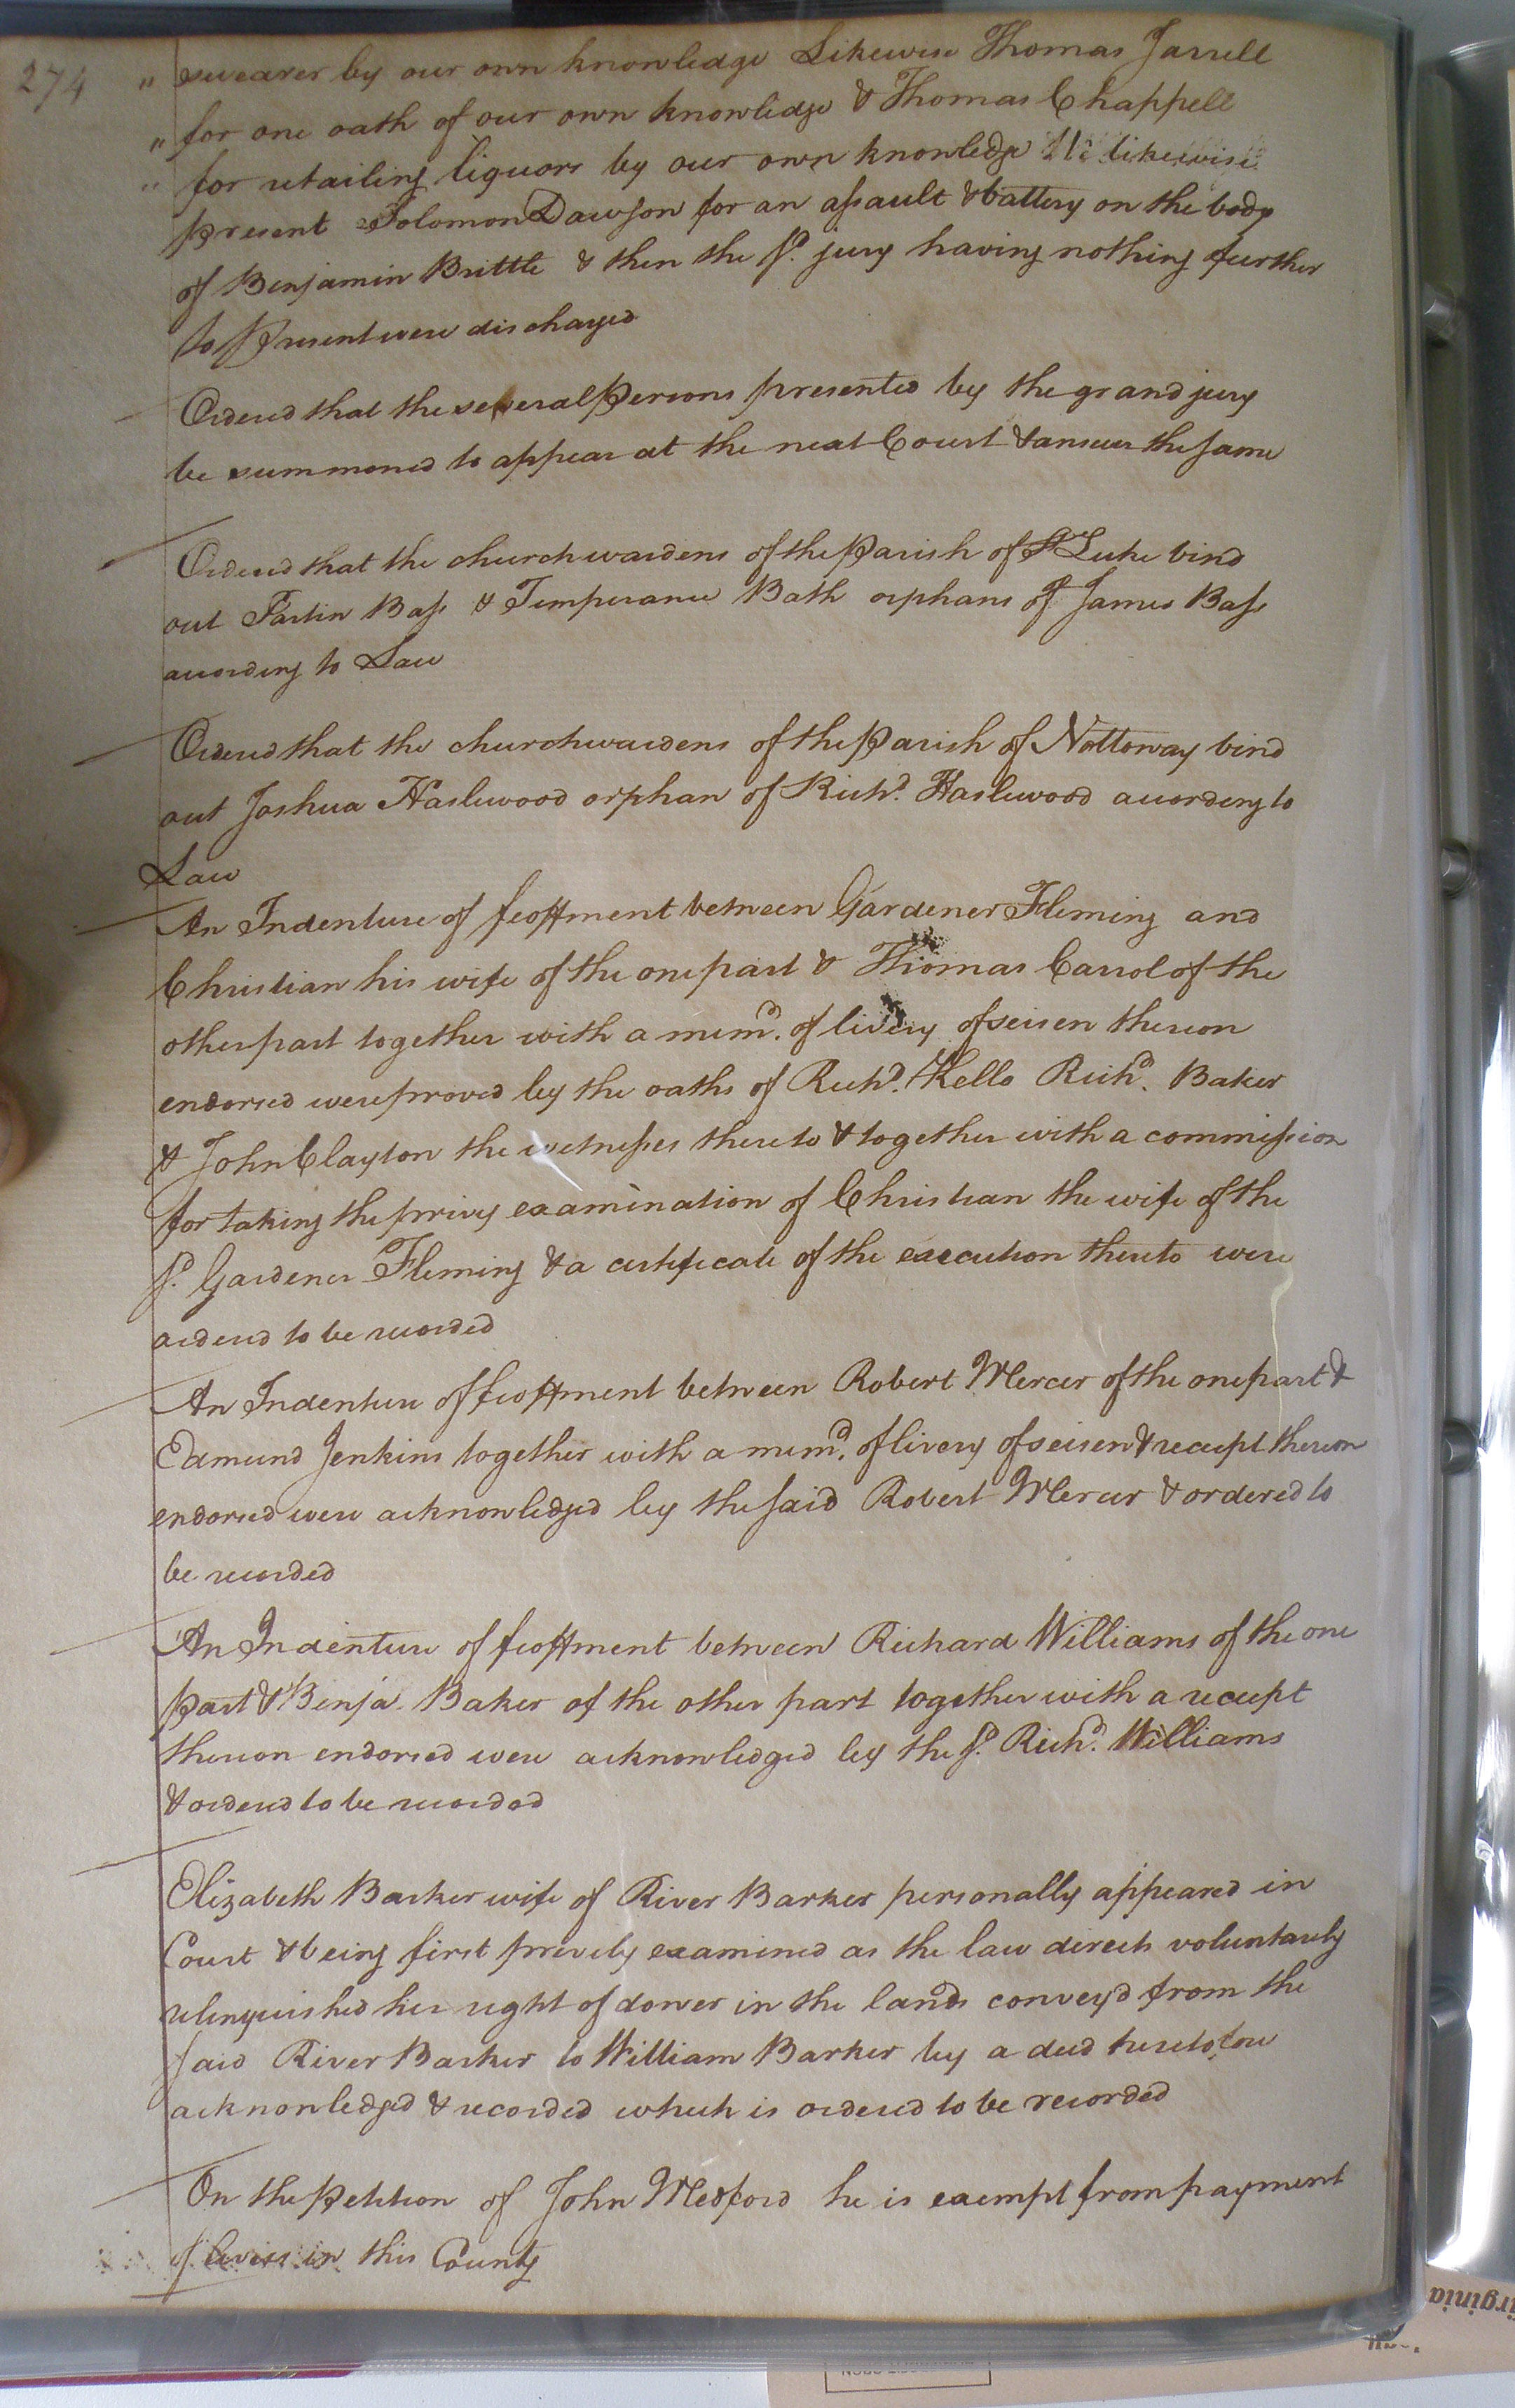 274
" swearer by our own knowledge Likewise Thomas Jarrell
" for one oath of our own knowledge & Thomas Chappell
" for retailing liquors by our own knowledge We likewise
present Solomon Dawson for an assault & battery on the body
of Benjamin Brittle & then the sd. jury having nothing further
to present were discharged
Ordered that the several persons presented by the grand jury
be summoned to appear at the next Court & answer the same
Ordered that the churchwardens of the parish of St Luke bind
out Bass & Temperance Bath orphans of James Bass
according to Law
Ordered that the churchwardens of the parish of Nottoway bind
out Joshua Haslewood orphan of Richd. Haslewood according to
Law
An Indenture of feoffment between Gardener Fleming and
Christian his wife of the one part & Thomas Carrol of the
other part together with a memd. of livery of seisen thereon
endorsed were proved by the oaths of Richd. Kello Richd. Baker
& John Clayton the witnesses thereto & together with a commission
for taking the privy examination of Christian the wife of the
sd. Gardener Fleming & a certificate of the execution thereto were
ordered to be recorded
An Indenture of feoffment between Robert Mercer of the one part &
Edmund Jenkins together with a memd. of livery of seisen & receipt thereon
endorsed were acknowledged by the said Robert Mercer & ordered to
be recorded
An Indenture of feoffment between Richard Williams of the one
part & Benja. Baker of the other part together with a receipt
thereon endorsed were acknowledged by the sd. Richd. Williams
& ordered to be recorded
Elizabeth Barker wife of River Barker personally appeared in
Court & being first privily examined as the law directs voluntarily
relinquished her right of dower in the lands convey'd from the
said River Barker to William Barker by a deed heretofore
acknowledged & recorded which is ordered to be recorded
On the petition of John Medford he is exempt from payment
of levies in this County